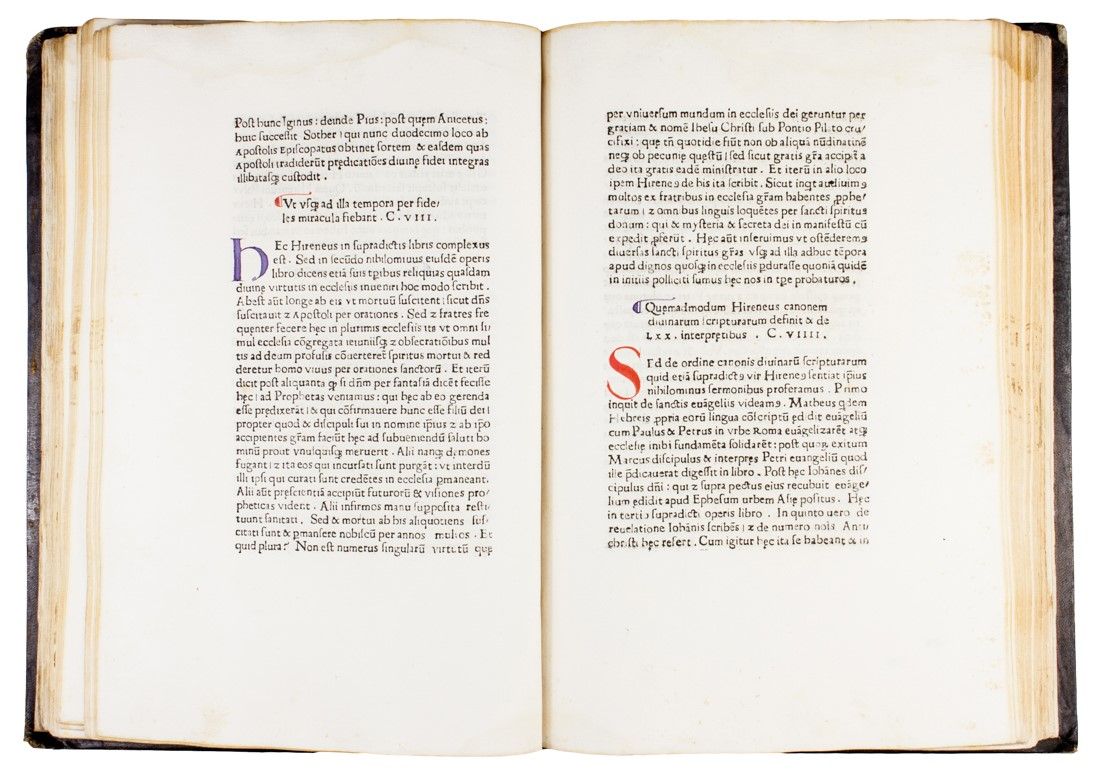 Post hunc Iginus: deinde Pius: post quem Anicetus:
huic successit Sother: qui nunc duodecimo loco ab
Apostolis Episcopatus obtinet sortem & easdem quas
Apostoli tradiderūt prędicatiōes diuinę fidei integras
illibatasqꝫ custodit.
Vt vsqꝫ ad illa tempora per fide/
les miracula fiebant. C. VIII.
HEc Hireneus in supradictis libris complexus
est. Sed in secūdo nihilominus eiusdē operis
libro dicens etiā suis tꝑibus reliquias quasdam
diuinę virtutis in ecclesiis inueniri hoc modo scribit.
Abest aūt longe ab eis vt mortuū suscitent: sicut dn̄s
suscitauit ⁊ Apostoli per orationes. Sed ⁊ fratres fre
quenter fecere hęc in plurimis ecclesiis ita vt omni si
mul ecclesia cōgregata ieiuniisqꝫ ⁊ obsecratiōibus mul
tis ad deum profusis cōuerteret spiritus mortui & red
deretur homo viuus per orationes sanctorū. Et iterū
dicit post aliquanta ꝙ si dn̄m per fantasiā dicēt fecisse
hęc: ad Prophetas veniamus: qui hęc ab eo gerenda
esse prędixerāt: & qui cōfirmauere hunc esse filiū dei:
propter quod & discipuli sui in nomine ip̄ius ⁊ ab ip̄o
accipientes gr̄am faciūt hęc ad subueniendū saluti ho
minū prout vnusquisqꝫ meruerit. Alii nanqꝫ dęmones
fugant: ⁊ ita eos qui incursati sunt purgāt: vt interdū
illi ipsi qui curati sunt credētes in ecclesia ꝑmaneant.
Alii aūt pręscientiā accipiūt futurorū & visiones pro/
pheticas vident. Alii infirmos manu supposita resti/
tuunt sanitati. Sed & mortui ab his aliquotiens sus/
citati sunt & ꝑmansere nobiscū per annos multos. Et
quid plura? Non est numerus singularū virtutū quę
per vniuersum mundum in ecclesiis dei geruntur per
gratiam & nomē Ihesu Christi sub Pontio Pilato cru/
cifixi: quę tn̄ quotidie fiūt non ob aliquā nūdinatiōē
neqꝫ ob pecunię quęstū: sed sicut gratis gr̄a accipit a
deo ita gratis eadē ministratur. Et iterū in alio loco
ipem Hireneꝯ de his ita scribit. Sicut inqt audiuimꝯ
multos ex fratribus in ecclesia gr̄am habentes ꝓphe/
tarum: ⁊ omnibus linguis loquētes per sancti spiritus
donum: qui & mysteria & secreta dei in manifestū cū
expedit ꝓferūt. Hęc aūt inseruimus vt ostēderemꝯ
diuersas sancti spiritus gr̄as vsqꝫ ad illa adhuc tēpora
apud dignos quosqꝫ in ecclesiis ꝑdurasse quoniā quidē
in initiis polliciti sumus hęc nos in tꝑe probaturos.
Quemadmodum Hireneus canonem
diuinarum scripturarum definit & de
LXX. interpretibus. C. VIIII.
SEd de ordine canonis diuinarū scripturarum
quid etiā supradictꝯ vir Hireneꝯ sentiat ip̄ius
nihilominus sermonibus proferamus. Primo
inquit de sanctis euāgeliis videamꝯ. Matheus qdem
Hebreis ꝓpria eorū lingua cōscriptū ędidit euāgeliū
cum Paulus & Petrus in vrbe Roma euāgelizarēt atqꝫ
ecclesię inibi fundamēta solidarēt: post quoꝝ exitum
Marcus discipulus & interpres Petri euangeliū quod
ille prędicauerat digessit in libro. Post hęc Iohānes dis/
cipulus dn̄i: qui ⁊ supra pectus eius recubuit euāge/
lium ędidit apud Ephesum urbem Asię positus. Hęc
in tertio supradicti operis libro. In quinto uero de
reuelatione Iohānis scribēs: ⁊ de numero nois Anti/
christi hęc refert. Cum igitur hęc ita se habeant & in